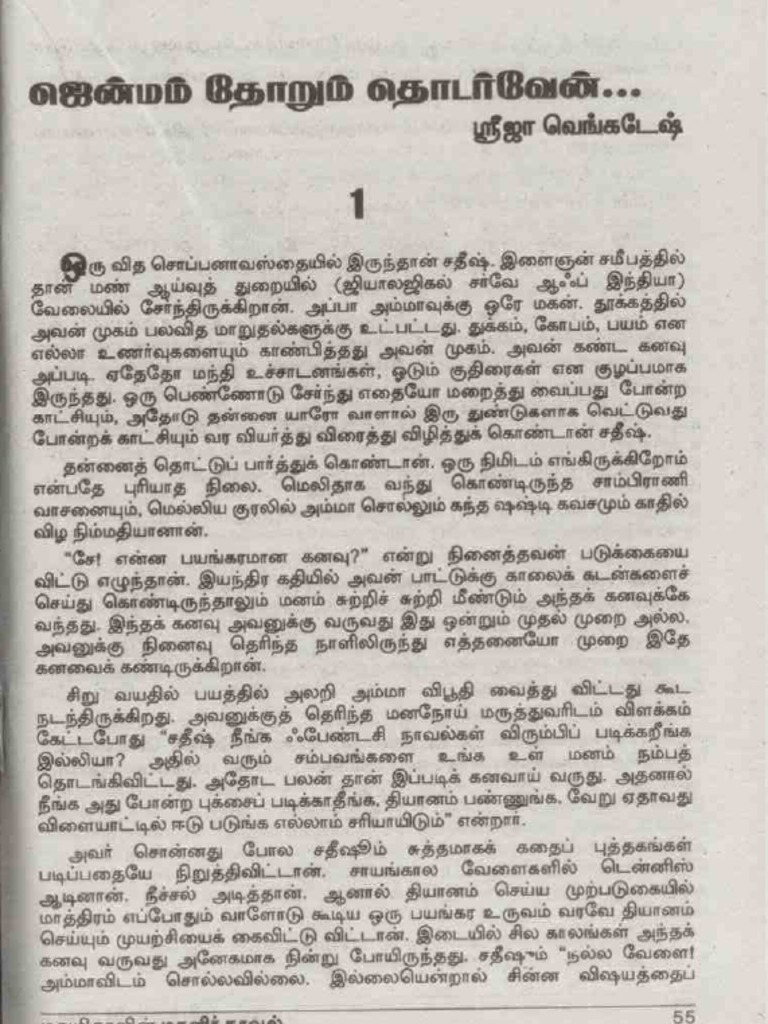 ஜென்மம் தோறும் தொடர்வேன்...
ஸ்ரீஜா வெங்கடேஷ்
1
ஒரு வித சொப்பனாவஸ்தையில் இருந்தான் சதீஷ். இளைஞன் சமீபத்தில்
தான் மண் ஆய்வுத் துறையில் (ஜியாலஜிகல் சர்வே ஆஃப் இந்தியா)
வேலையில் சேர்ந்திருக்கிறான். அப்பா அம்மாவுக்கு ஒரே மகன். தூக்கத்தில்
அவன் முகம் பலவித மாறுதல்களுக்கு உட்பட்டது. துக்கம், கோபம், பயம் என
எல்லா உணர்வுகளையும் காண்பித்தது அவன் முகம். அவன் கண்ட கனவு
அப்படி. ஏதேதோ மந்தி உச்சாடனங்கள், ஓடும் குதிரைகள் என குழப்பமாக
இருந்தது. ஒரு பெண்ணோடு சேர்ந்து எதையோ மறைத்து வைப்பது போன்ற
காட்சியும், அதோடு தன்னை யாரோ வாளால் இரு துண்டுகளாக வெட்டுவது
போன்றக் காட்சியும் வர வியர்த்து விரைத்து விழித்துக் கொண்டான் சதீஷ்.
தன்னைத் தொட்டுப் பார்த்துக் கொண்டான். ஒரு நிமிடம் எங்கிருக்கிறோம்
என்பதே புரியாத நிலை. மெலிதாக வந்து கொண்டிருந்த சாம்பிராணி
வாசனையும், மெல்லிய குரலில் அம்மா சொல்லும் கந்த ஷஷ்டி கவசமும் காதில்
விழ நிம்மதியானான்.
"சே! என்ன பயங்கரமான கனவு?" என்று நினைத்தவன் படுக்கையை
விட்டு எழுந்தான். இயந்திர கதியில் அவன் பாட்டுக்கு காலைக் கடன்களைச்
செய்து கொண்டிருந்தாலும் மனம் சுற்றிச் சுற்றி மீண்டும் அந்தக் கனவுக்கே
வந்தது. இந்தக் கனவு அவனுக்கு வருவது இது ஒன்றும் முதல் முறை அல்ல.
அவனுக்கு நினைவு தெரிந்த நாளிலிருந்து எத்தனையோ முறை இதே
கனவைக் கண்டிருக்கிறான்.
சிறு வயதில் பயத்தில் அலறி அம்மா விபூதி வைத்து விட்டது கூட
நடந்திருக்கிறது. அவனுக்குத் தெரிந்த மனநோய் மருத்துவரிடம் விளக்கம்
கேட்டபோது "சதீஷ் நீங்க ஃபேண்டசி நாவல்கள் விரும்பிப் படிக்கறீங்க
இல்லியா? அதில் வரும் சம்பவங்களை உங்க உள் மனம் நம்பத்
தொடங்கிவிட்டது. அதோட பலன் தான் இப்படிக் கனவாய் வருது. அதனால்
நீங்க அது போன்ற புக்சைப் படிக்காதீங்க, தியானம் பண்ணுங்க, வேறு ஏதாவது
விளையாட்டில் ஈடு படுங்க எல்லாம் சரியாயிடும்" என்றார்.
அவர் சொன்னது போல சதீஷும் சுத்தமாகக் கதைப் புத்தகங்கள்
படிப்பதையே நிறுத்திவிட்டான். சாயங்கால வேளைகளில் டென்னிஸ்
ஆடினான். நீச்சல் அடித்தான். ஆனால் தியானம் செய்ய முற்படுகையில்
மாத்திரம் எப்போதும் வாளோடு கூடிய ஒரு பயங்கர உருவம் வரவே தியானம்
செய்யும் முயற்சியைக் கைவிட்டு விட்டான். இடையில் சில காலங்கள் அந்தக்
கனவு வருவது அனேகமாக நின்று போயிருந்தது. சதீஷும் "நல்ல வேளை!
அம்மாவிடம் சொல்லவில்லை. இல்லையென்றால் சின்ன விஷயத்தைப்
55